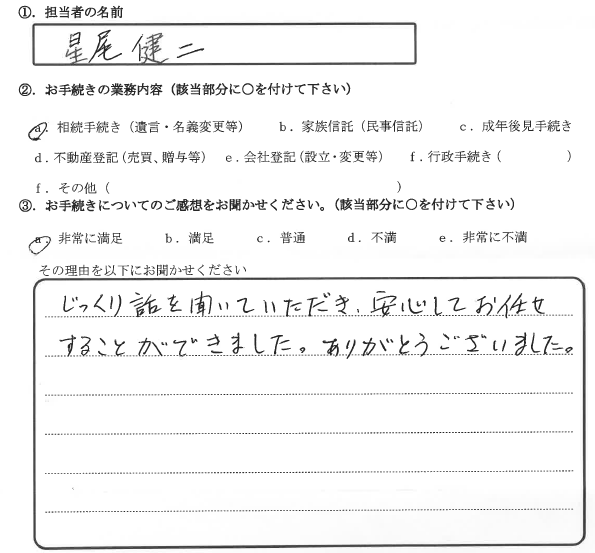 ①．担当者の名前
星尾 健二
②．お手続きの業務内容（該当部分に〇を付けて下さい）
a．相続手続き（遺言・名義変更等）　b．家族信託（民事信託）　c．成年後見手続き
d．不動産登記（売買、贈与等）　e．会社登記（設立・変更等）　f．行政手続き（　　　　）
f．その他（　　　　　　　　　　　　　　　　　　　　）
③．お手続きについてのご感想をお聞かせください。（該当部分に〇を付けて下さい）
a．非常に満足　b．満足　c．普通　d．不満　e．非常に不満
その理由を以下にお聞かせください
じっくり話を聞いていただき、安心してお任せ
することができました。ありがとうございました。